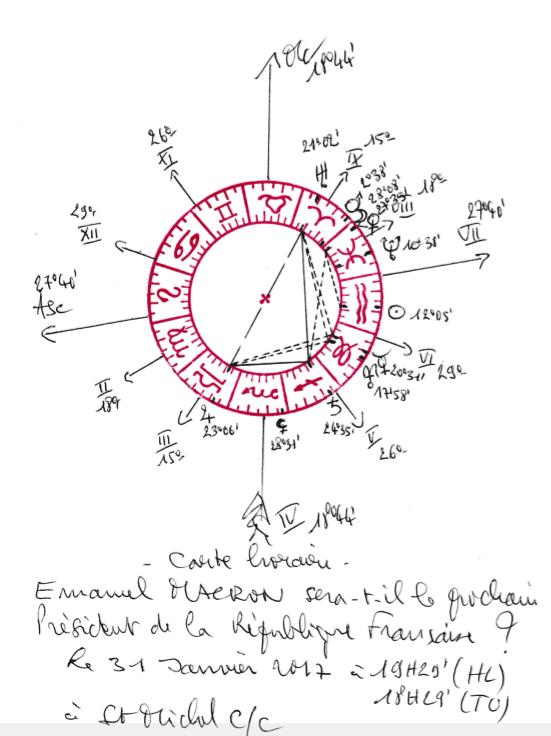 18°44'
26°
XI
21°02'
IX 15°
2°38'
28°08'
VIII 18°
27°40'
VII
29°
XII
27°40'
Asc
12°05'
VI 29°
20°31'
17°58'
II
18°
III
15°
23°06'
28°31'
24°35'
V
26°
IV 18°44'
- Carte horaire -
Emmanuel MACRON sera-t-il le prochain
Président de la République Française ?
Le 31 Janvier 2017 à 19H29' (HL)
18H29' (TU)
à St Michel C/C